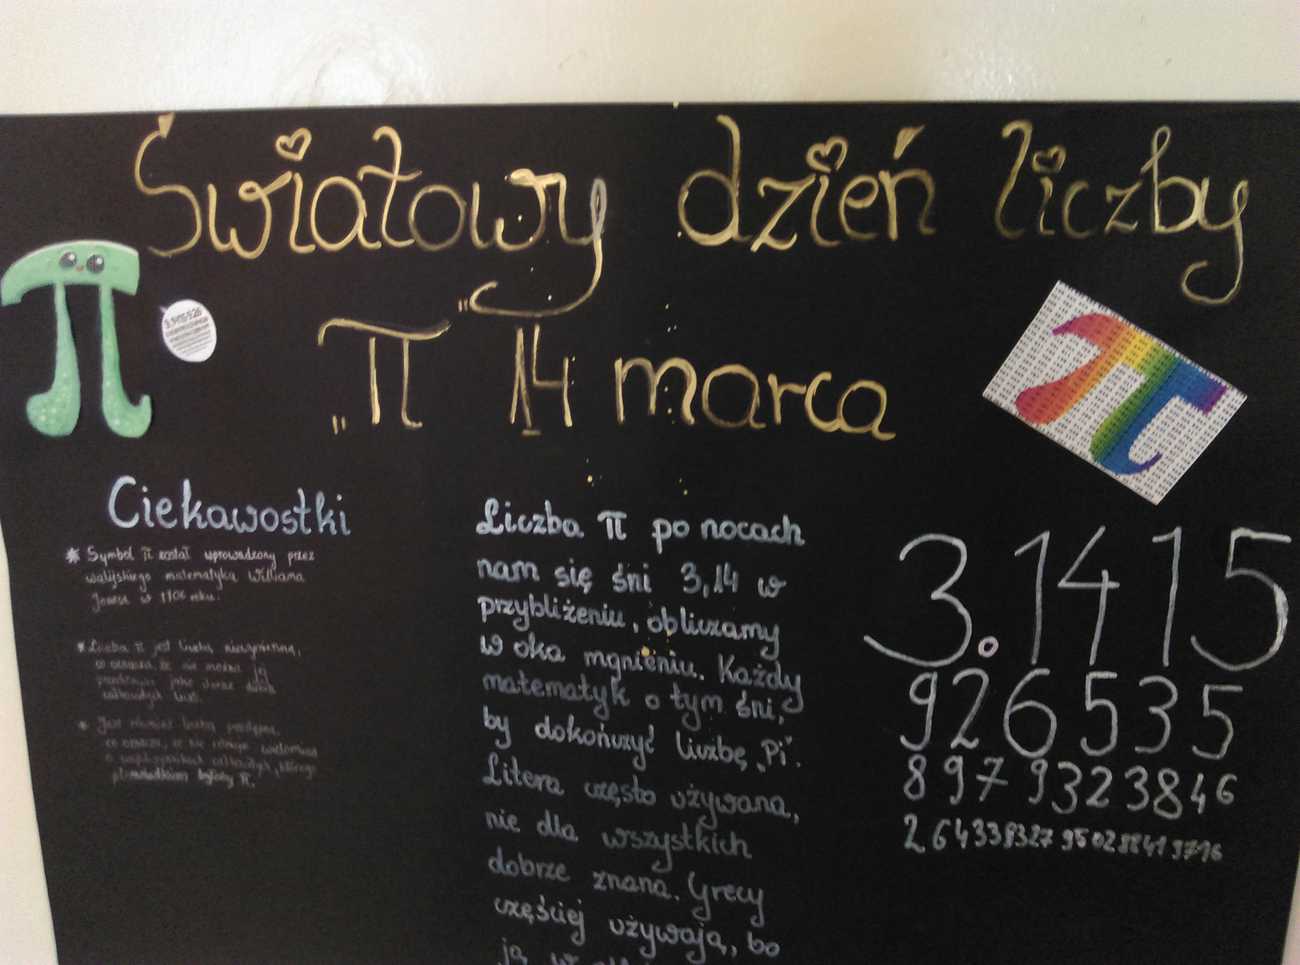 Światowy dzień liczby
„π” 14 marca
3.1415926
Ciekawostki
* Symbol π został wprowadzony przez
walijskiego matematyka Williama
Jonesa w 1706 roku.
* Liczba π jest liczbą niewymierną,
co oznacza, że nie można ją
przedstawić jako iloraz dwóch
całkowitych liczb.
* Jest również liczbą przestępną,
co oznacza, że nie istnieje wielomian
o współczynnikach całkowitych, którego
pierwiastkiem byłoby π.
Liczba π po nocach
nam się śni 3,14 w
przybliżeniu, obliczamy
w oka mgnieniu. Każdy
matematyk o tym śni,
by dokończyć liczbę „Pi”.
Litera często używana,
nie dla wszystkich
dobrze znana. Grecy
częściej używają, bo
ją w
3.1415
926535
8979323846
264338327950288419716